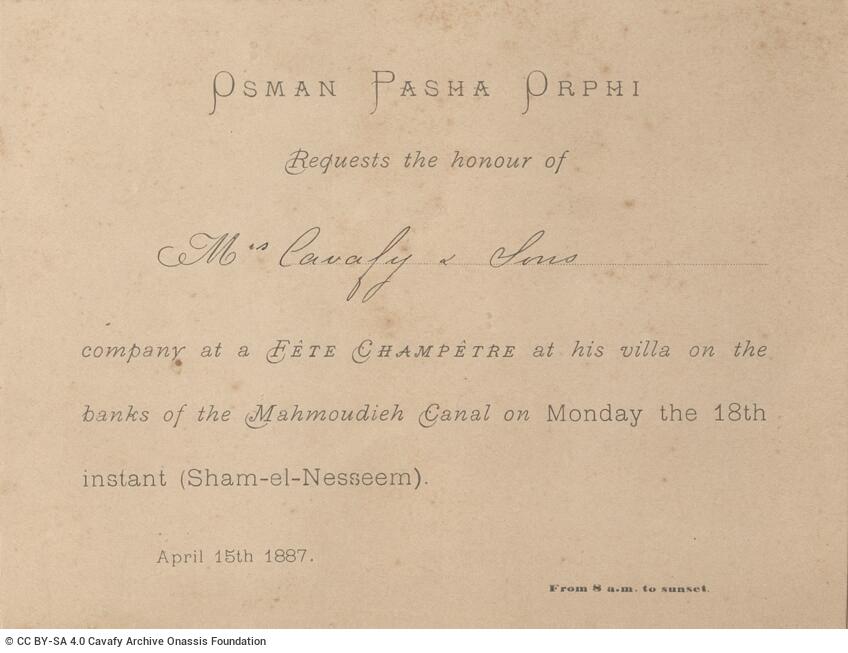 OSMAN PASHA ORPHI
Requests the honour of
Mrs Cavafy & Sons
company at a FÊTE CHAMPÊTRE at his villa on the
banks of the Mahmoudieh Canal on Monday the 18th
instant (Sham-el-Nesseem).
April 15th 1887.
From 8 a.m. to sunset.
© CC BY-SA 4.0 Cavafy Archive Onassis Foundation